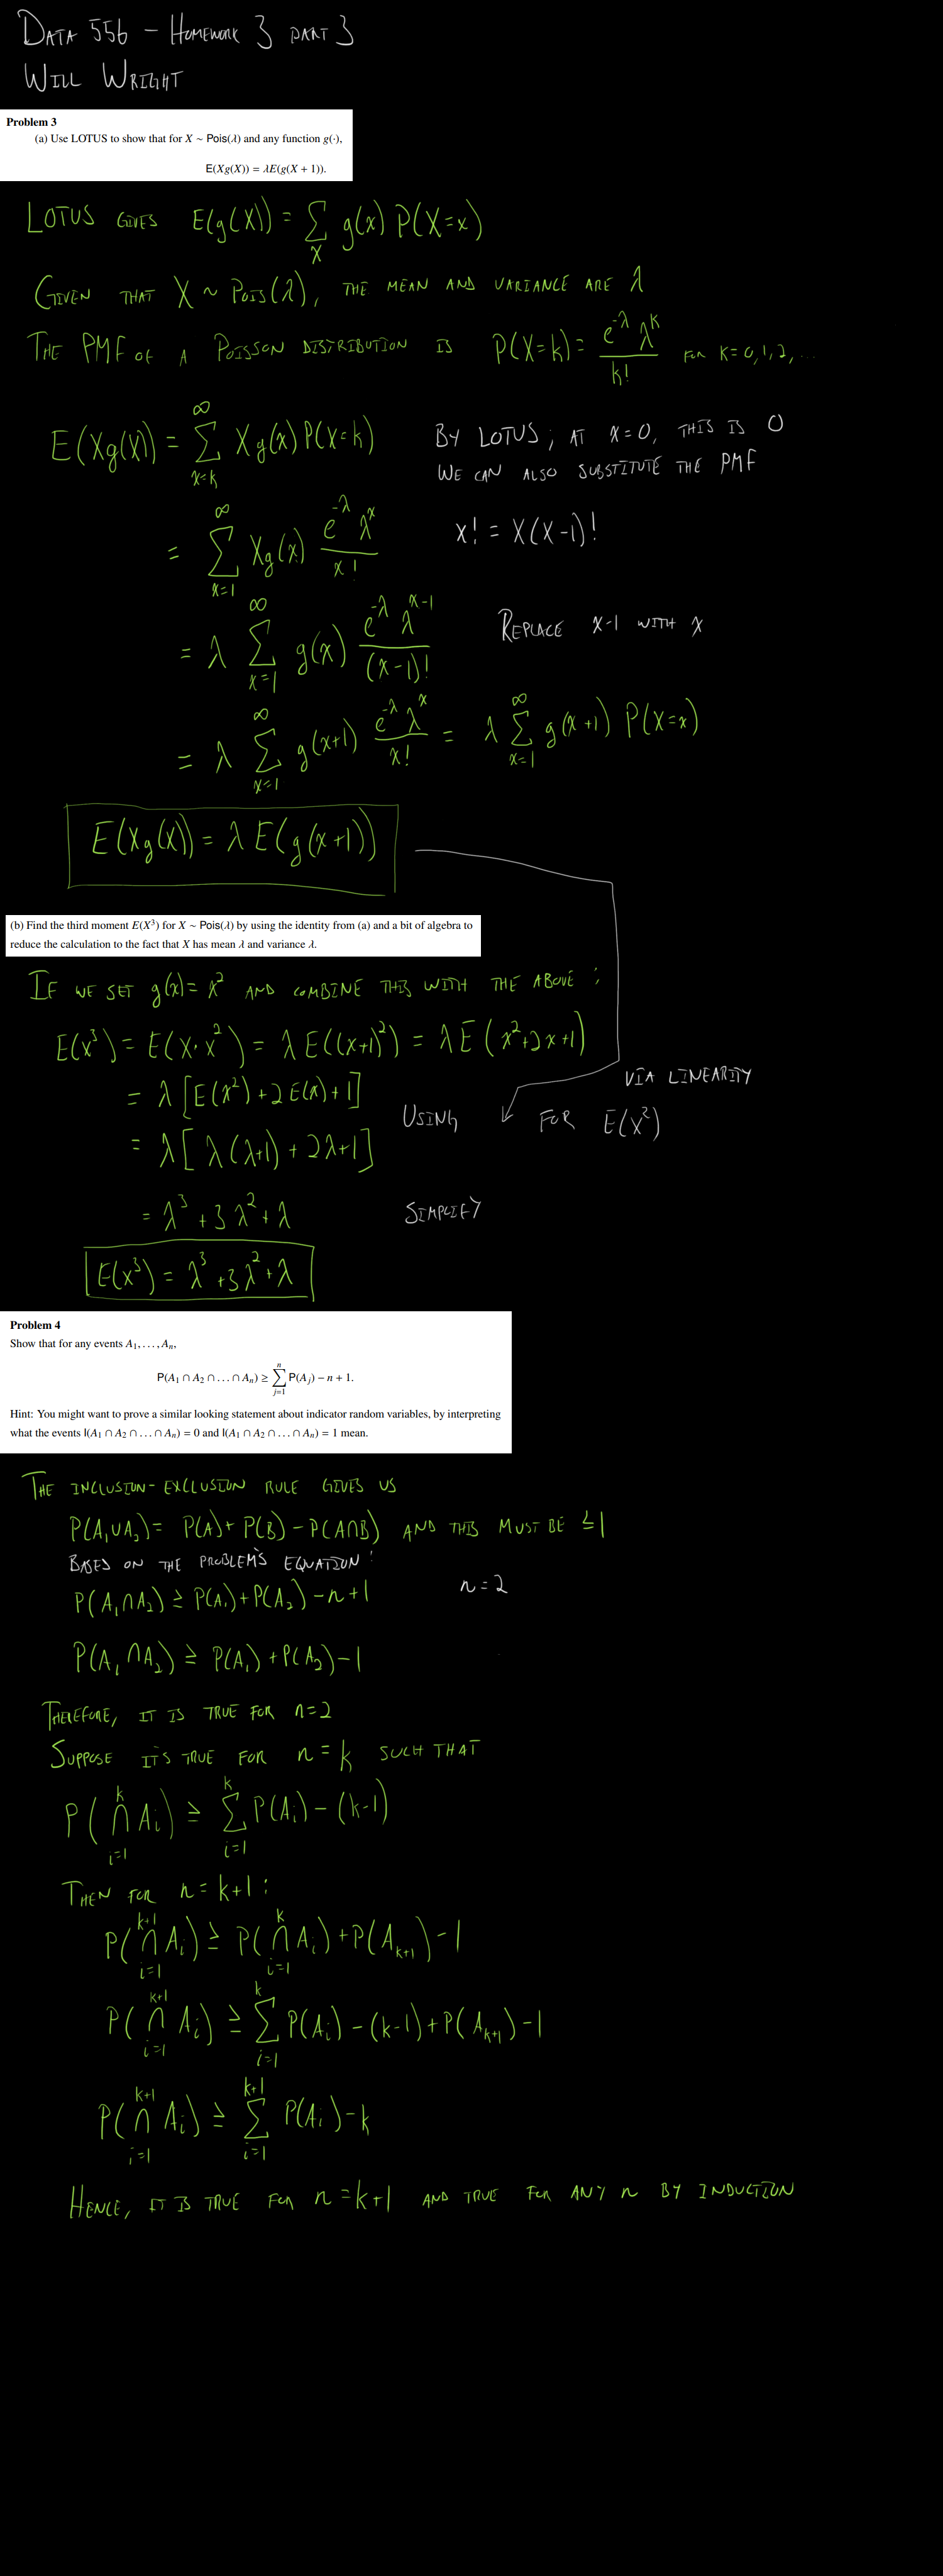 DATA 556 - HOMEWORK 3 PART 3
WILL WRIGHT
Problem 3
(a) Use LOTUS to show that for X ∼ Pois(λ) and any function g(·),
E(Xg(X)) = λE(g(X + 1)).
LOTUS GIVES E(g(X)) = Σ_x g(x) P(X=x)
GIVEN THAT X ~ POIS(λ), THE MEAN AND VARIANCE ARE λ
THE PMF OF A POISSON DISTRIBUTION IS P(X=k) = e^{-λ} λ^k / k! FOR K=0,1,2,...
E(Xg(X)) = Σ_{x=k}^{∞} Xg(x) P(X=k) BY LOTUS; AT X=0, THIS IS 0
WE CAN ALSO SUBSTITUTE THE PMF
= Σ_{x=1}^{∞} Xg(x) e^{-λ} λ^x / x! x! = X(X-1)!
= λ Σ_{x=1}^{∞} g(x) e^{-λ} λ^{x-1} / (x-1)! REPLACE X-1 WITH X
= λ Σ_{x=1}^{∞} g(x+1) e^{-λ} λ^x / x! = λ Σ_{x=1}^{∞} g(x+1) P(X=x)
E(Xg(X)) = λ E(g(x+1))
(b) Find the third moment E(X³) for X ∼ Pois(λ) by using the identity from (a) and a bit of algebra to
reduce the calculation to the fact that X has mean λ and variance λ.
IF WE SET g(x) = x² AND COMBINE THIS WITH THE ABOVE:
E(x³) = E(X·x²) = λ E((x+1)²) = λ E(x²+2x+1)
= λ[E(x²)+2E(x)+1] VIA LINEARITY
= λ[λ(λ+1)+2λ+1] USING FOR E(X²)
= λ³+3λ²+λ SIMPLIFY
E(x³) = λ³+3λ²+λ
Problem 4
Show that for any events A₁, . . . , Aₙ,
P(A₁ ∩ A₂ ∩ . . . ∩ Aₙ) ≥ Σ_{j=1}^{n} P(A_j) − n + 1.
Hint: You might want to prove a similar looking statement about indicator random variables, by interpreting
what the events I(A₁ ∩ A₂ ∩ . . . ∩ Aₙ) = 0 and I(A₁ ∩ A₂ ∩ . . . ∩ Aₙ) = 1 mean.
THE INCLUSION-EXCLUSION RULE GIVES US
P(A₁∪A₂) = P(A)+P(B)-P(A∩B) AND THIS MUST BE ≤1
BASED ON THE PROBLEM'S EQUATION:
P(A₁∩A₂) ≥ P(A₁)+P(A₂)-n+1 n=2
P(A₁∩A₂) ≥ P(A₁)+P(A₂)-1
THEREFORE, IT IS TRUE FOR n=2
SUPPOSE IT'S TRUE FOR n=k SUCH THAT
P(∩_{i=1}^{k} A_i) ≥ Σ_{i=1}^{k} P(A_i)-(k-1)
THEN FOR n=k+1:
P(∩_{i=1}^{k+1} A_i) ≥ P(∩_{i=1}^{k} A_i)+P(A_{k+1})-1
P(∩_{i=1}^{k+1} A_i) ≥ Σ_{i=1}^{k} P(A_i)-(k-1)+P(A_{k+1})-1
P(∩_{i=1}^{k+1} A_i) ≥ Σ_{i=1}^{k+1} P(A_i)-k
HENCE, IT IS TRUE FOR n=k+1 AND TRUE FOR ANY n BY INDUCTION